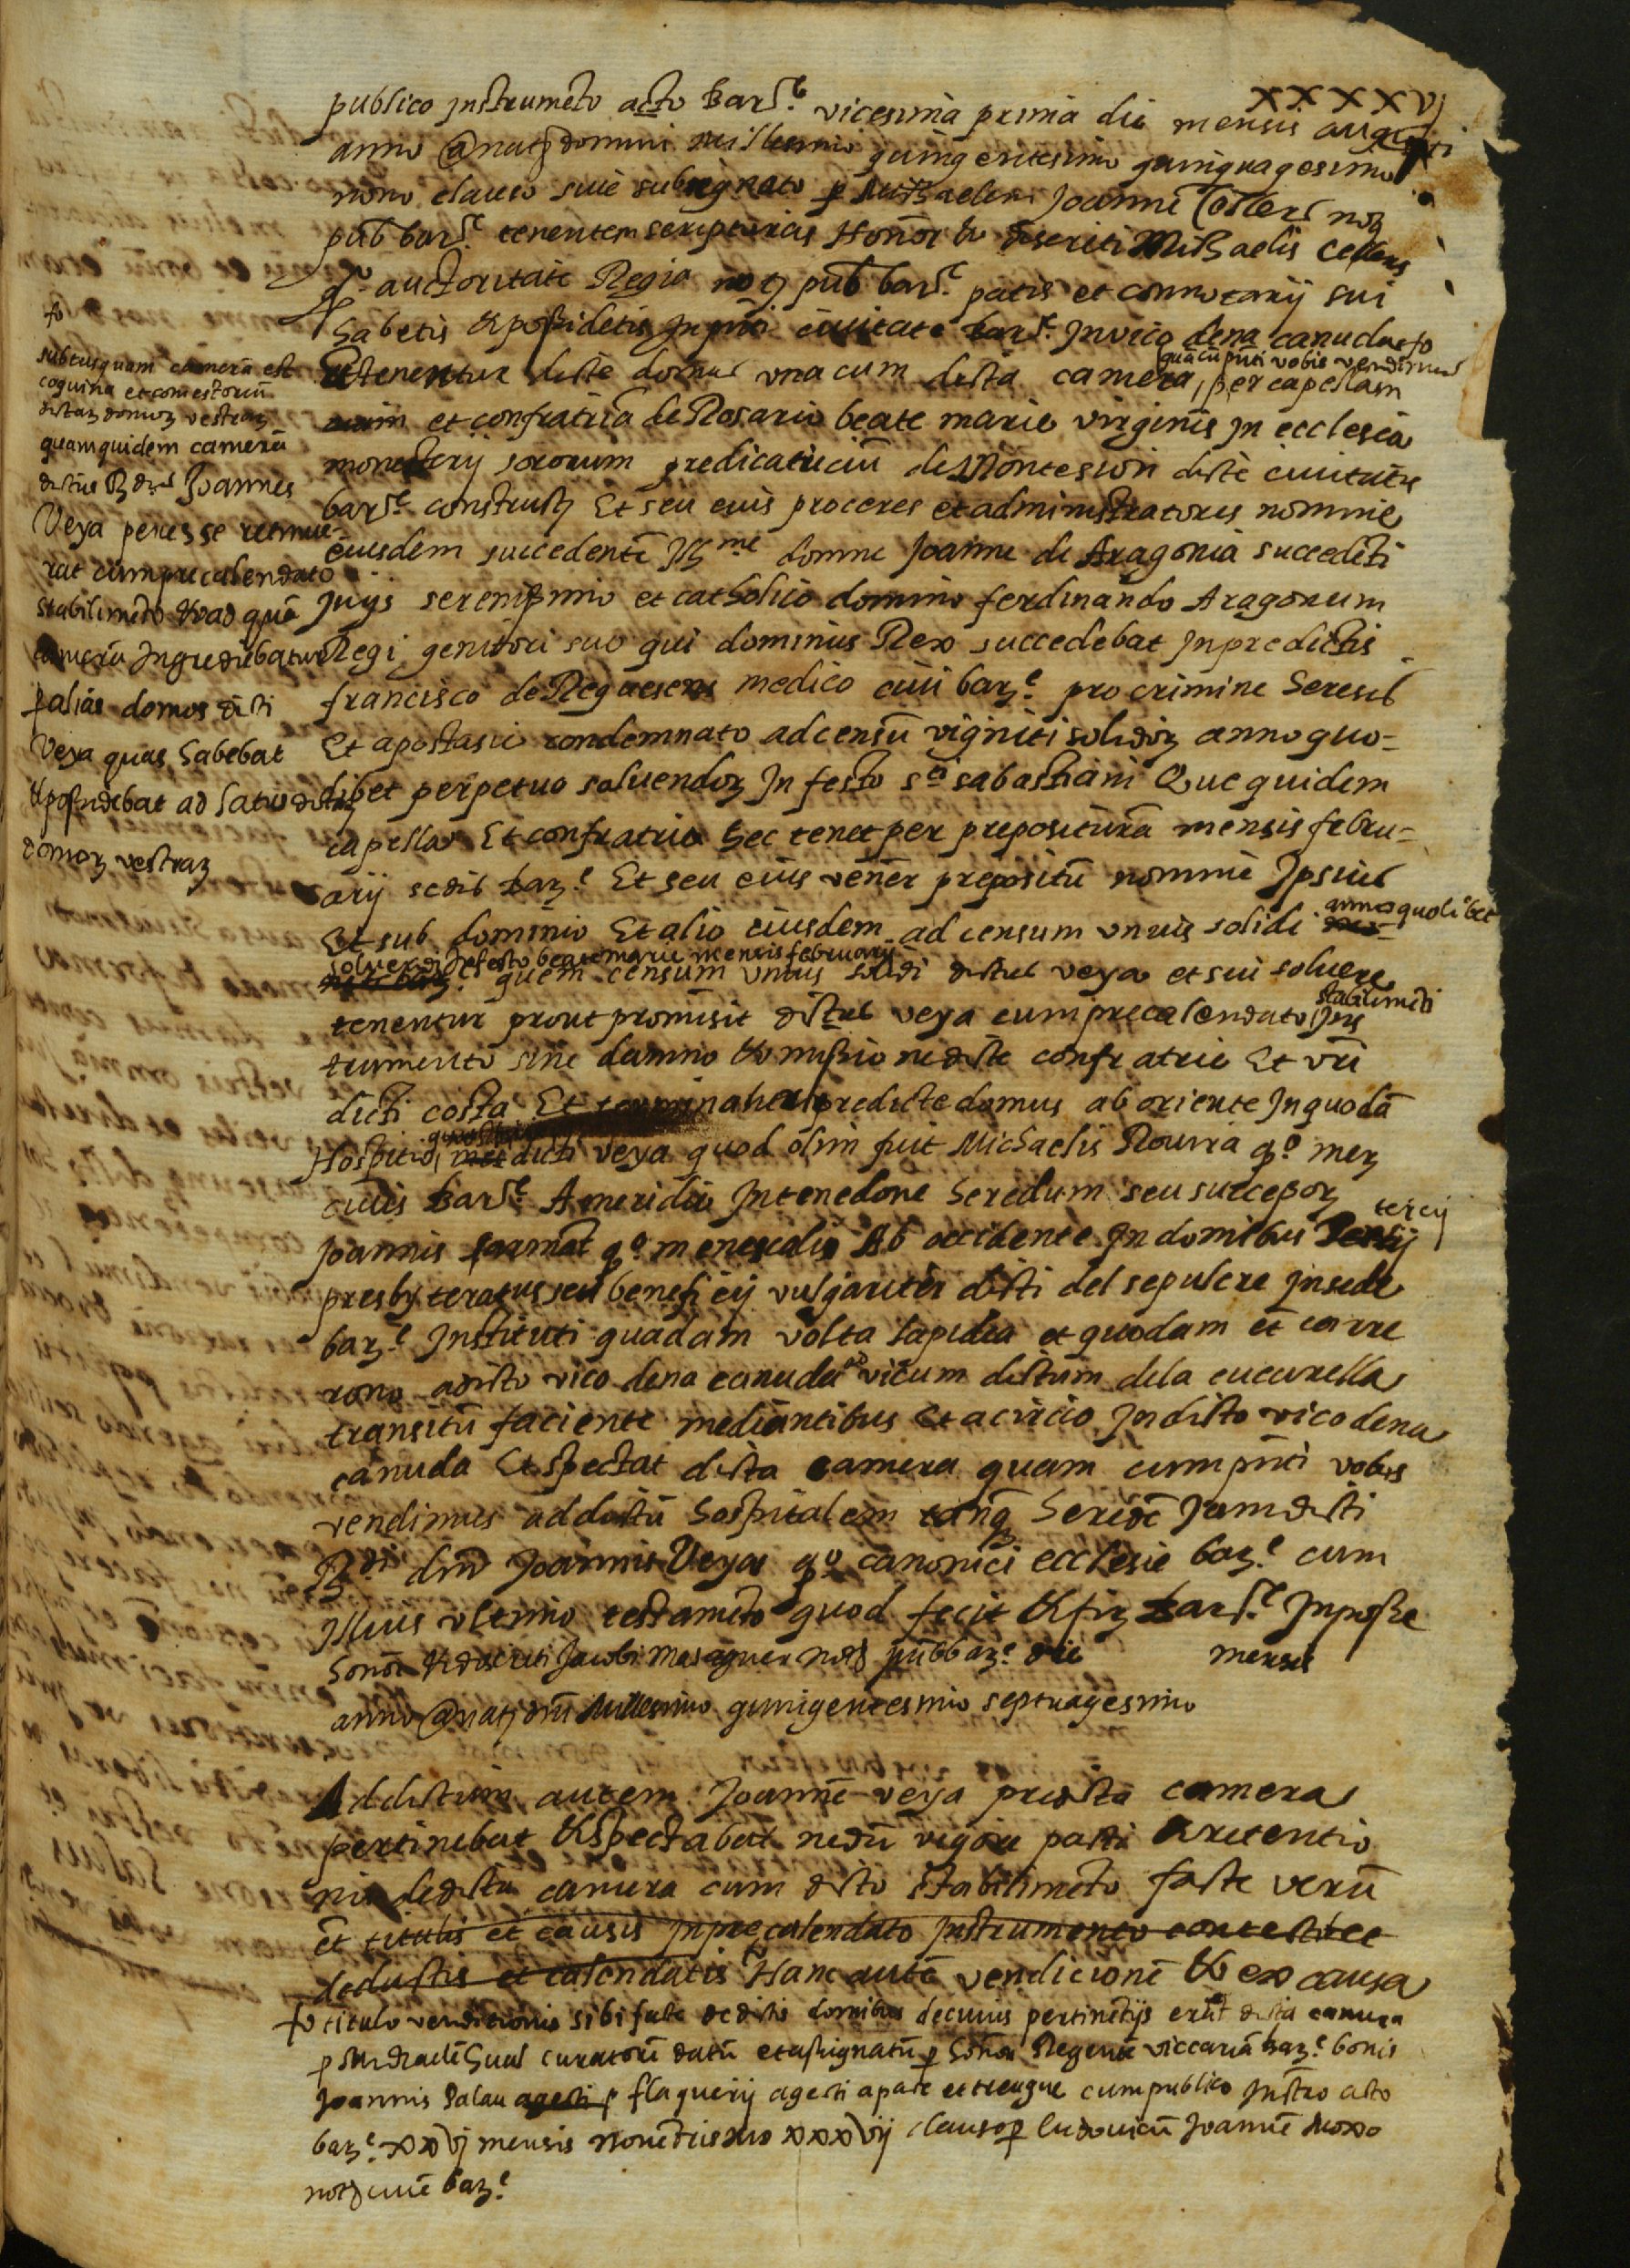 xxxxvj
publico Instrumẽto acto Barᶜ. vicesima prima die mensis augusti
anno @ natj domini millesimo quingentesimo quinquagesimo
nono clauso sive subsignato p Michaelem Joannẽ Cellers notz
pub barᶜ. tenentem scripturas Honor et discriti Michaelis Cellers
qº. auctoritate Regia notz pub barᶜ. patris et connotarij sui
habetis & possidetis In pñti civitate barᶜ. In vico dena canuda fo
quã cũ pñti vobis vendimus
Et tenentur dicte domus una cum dicta camera, per capellam
et confratria de Rosario beate marie virginis In ecclesia
monesterij sororum predicatricũ de Montesion dicte civitatis
barᶜ. construct Et seu eius proceres et administratores nomine
eiusdem succedentẽ Illᵐᵉ domne Joanne de Aragonia succedẽti
Juys serenissimo et catholico domino ferdinando Aragonum
Regi genitori suo qui dominus Rex succedebat In predictis
francisco de Reguesens medico civi barᶜ. pro crimine heresis
Et apostasie condemnato ad censũ viginti solidoz anno quo-
libet perpetuo solvendoz In festo sᵗⁱ sabastiani Que quidem
capella Et confratria hec tenet per prepositurã mensis febru-
arij sedis barᶜ. Et seu eius vener prepositũ nomine Ipsius
Et sub dominio Et alio eiusdem ad censum unius solidi anno quolibet
solvendi In festo beate marie mensis februarij
quem censum unius solidi dictus veya et sui solvere
tenentur prout promisit dictus veya cum precalendato stabilimẽti Ins
trumento sine damno & missione dicte confratrie Et vri
dicti costa Et terminantur predicte domus ab oriente In quodã
Hospitio dicti veya quod olim fuit Michaelis Rovira qº. merz
civis barᶜ. A meridie In tenedone heredum seu successoz
Joannis qº. menescalis Ab occidente In domibus tercij
presbyteratus seu beneficij vulgariter dicti del sepulcre In sede
barᶜ. Instituti quadam volta lapidea et quodam et carre
rono a dicto vico dena canuda ad vicum dictum dela cucurella
transitũ faciente mediantibus Et a circio In dicto vico dena
canuda Et spectat dicta camera quam cum pñti vobis
vendimus ad dictũ hospitalem tanq heredẽ Jam dicti
Rᵈⁱ dñi Joannis Veya qº canonici ecclesie barᶜ. cum
Illius ultimo testamẽto quod fecit & fir barᶜ. In posse
honor & discreti Jacobi Masaguer notz pub barᶜ. die mensis
anno @ natj dñi Millesimo quingentesimo septuagesimo
Ad dictum autem Joannẽ veya predicta camera
pertinebat & spectabat nedũ vigore pacti & retentio
nis de dicta camera cum dicto stabilimẽto facte verũ
et titulis et causis In precalendato Instrumento contestis et
deductis et calendatis Hanc autẽ vendicionẽ & ex causa
fo titulo venditionis sibi facte de dictis domibus de cuius pertinẽtijs erat dicta camera
p curatorẽ datũ et assignatũ p honor Regentẽ viccariã barᶜ. bonis
Joannis Palau agesti p flaquerij agesti a pace et treugue cum publico Instro acto
barᶜ. xxvj mensis novẽbris mo xxxvij clauso p ludovicũ Joannẽ
notz civẽ barᶜ.
fo
subtus quam camerã est
coquina et comestoriũ
dictaz domoz vestraz
quamquidem camerã
dictus Rᵈᵘˢ Joannes
Veya penes se retinue-
rat cum precalendato
stabilimẽto & ad quã
camerã Ingrediebatur
p alias domos dicti
Veya quas habebat
& possidebat ad latus dictaz
domoz vestraz